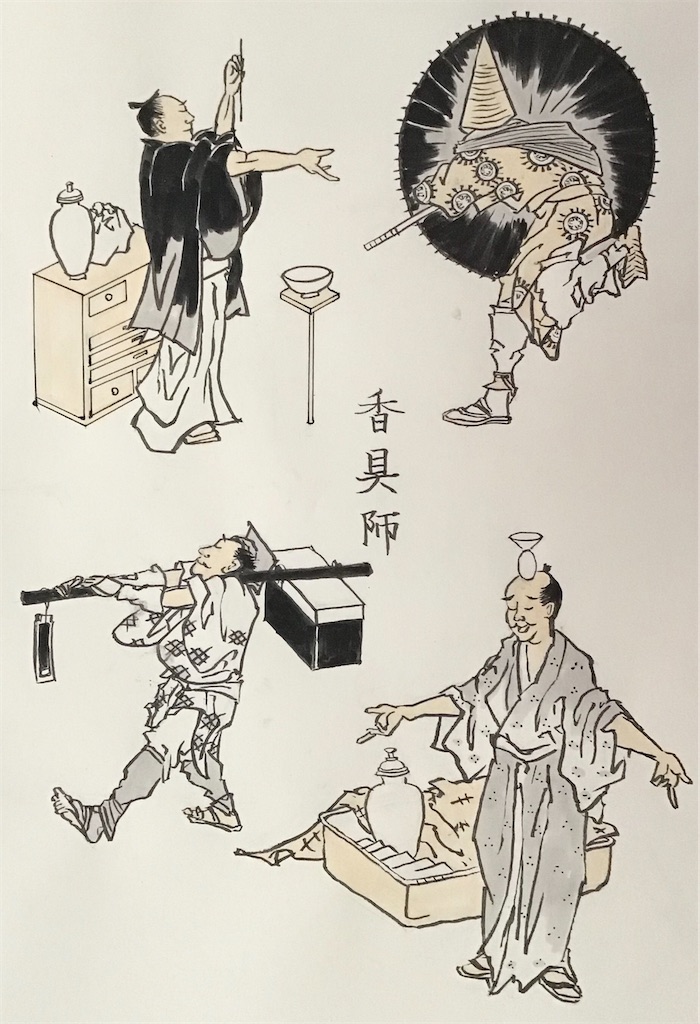 香具師